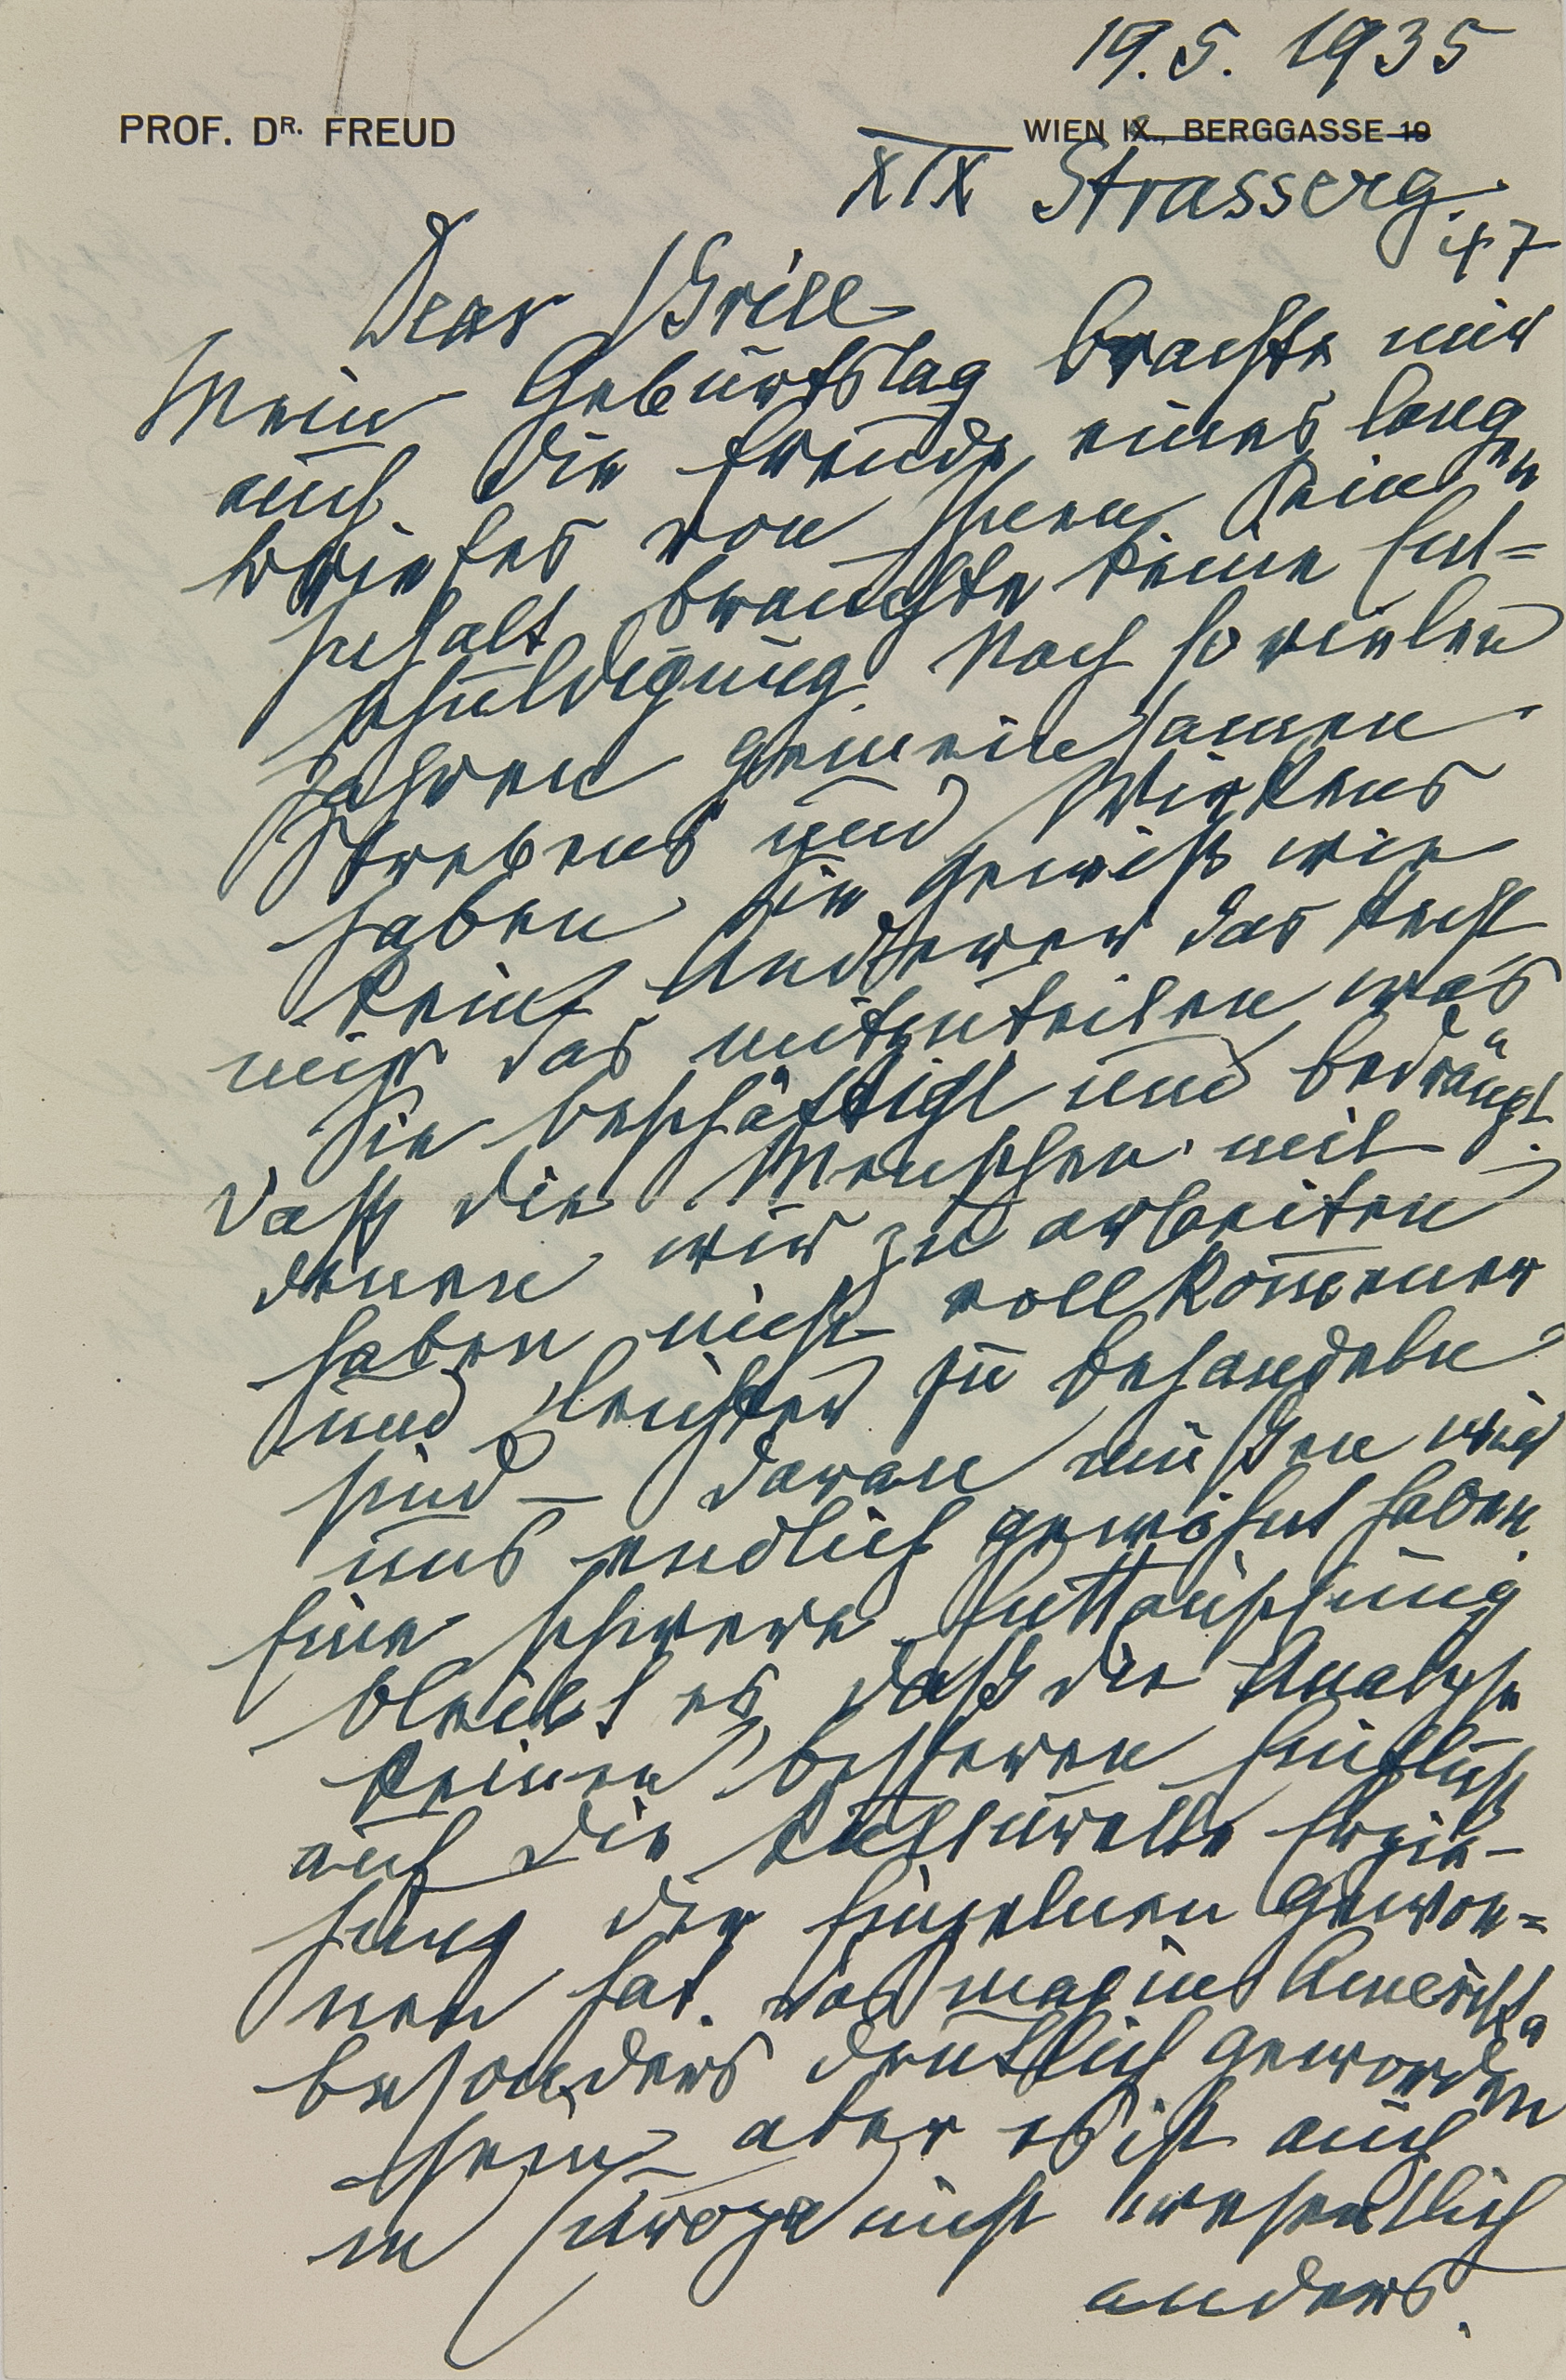 19.5. 1935
PROF. DR. FREUD
WIEN IX., BERGGASSE 19
XIX Strasserg.
47
Dear Brill
Mein Geburtstag brachte mir
auch die Freude eines langen
Briefes von Ihnen. Sein In=
halt brauchte keine Ent=
schuldigung. Nach so vielen
Jahren gemeinsamen
Strebens und Wirkens
haben Sie gewiß wie
kein Anderer das Recht
mir das mitzuteilen, was
Sie beschäftigt und bedrängt.
Daß die Menschen mit
denen wir zu arbeiten
haben nicht vollkommener
und leichter zu behandeln
sind – daran müßten wir
uns endlich gewöhnt haben.
Eine schwere Enttäuschung
bleibt es, daß die Analyse
keinen besseren Einfluß
auf die kulturelle Erzie-
hung der Einzelnen gewon=
nen hat. Das mag in Amerika
besonders deutlich geworden
sein, aber es ist auch
in Europa nicht wesentlich
anders.